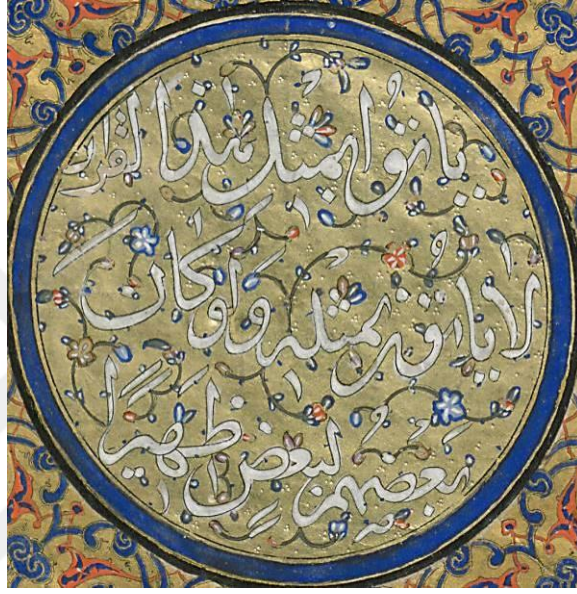 يأتوا بمثل هذا القرآن
لا يأتون بمثله ولو كان
بعضهم لبعض ظهيرا